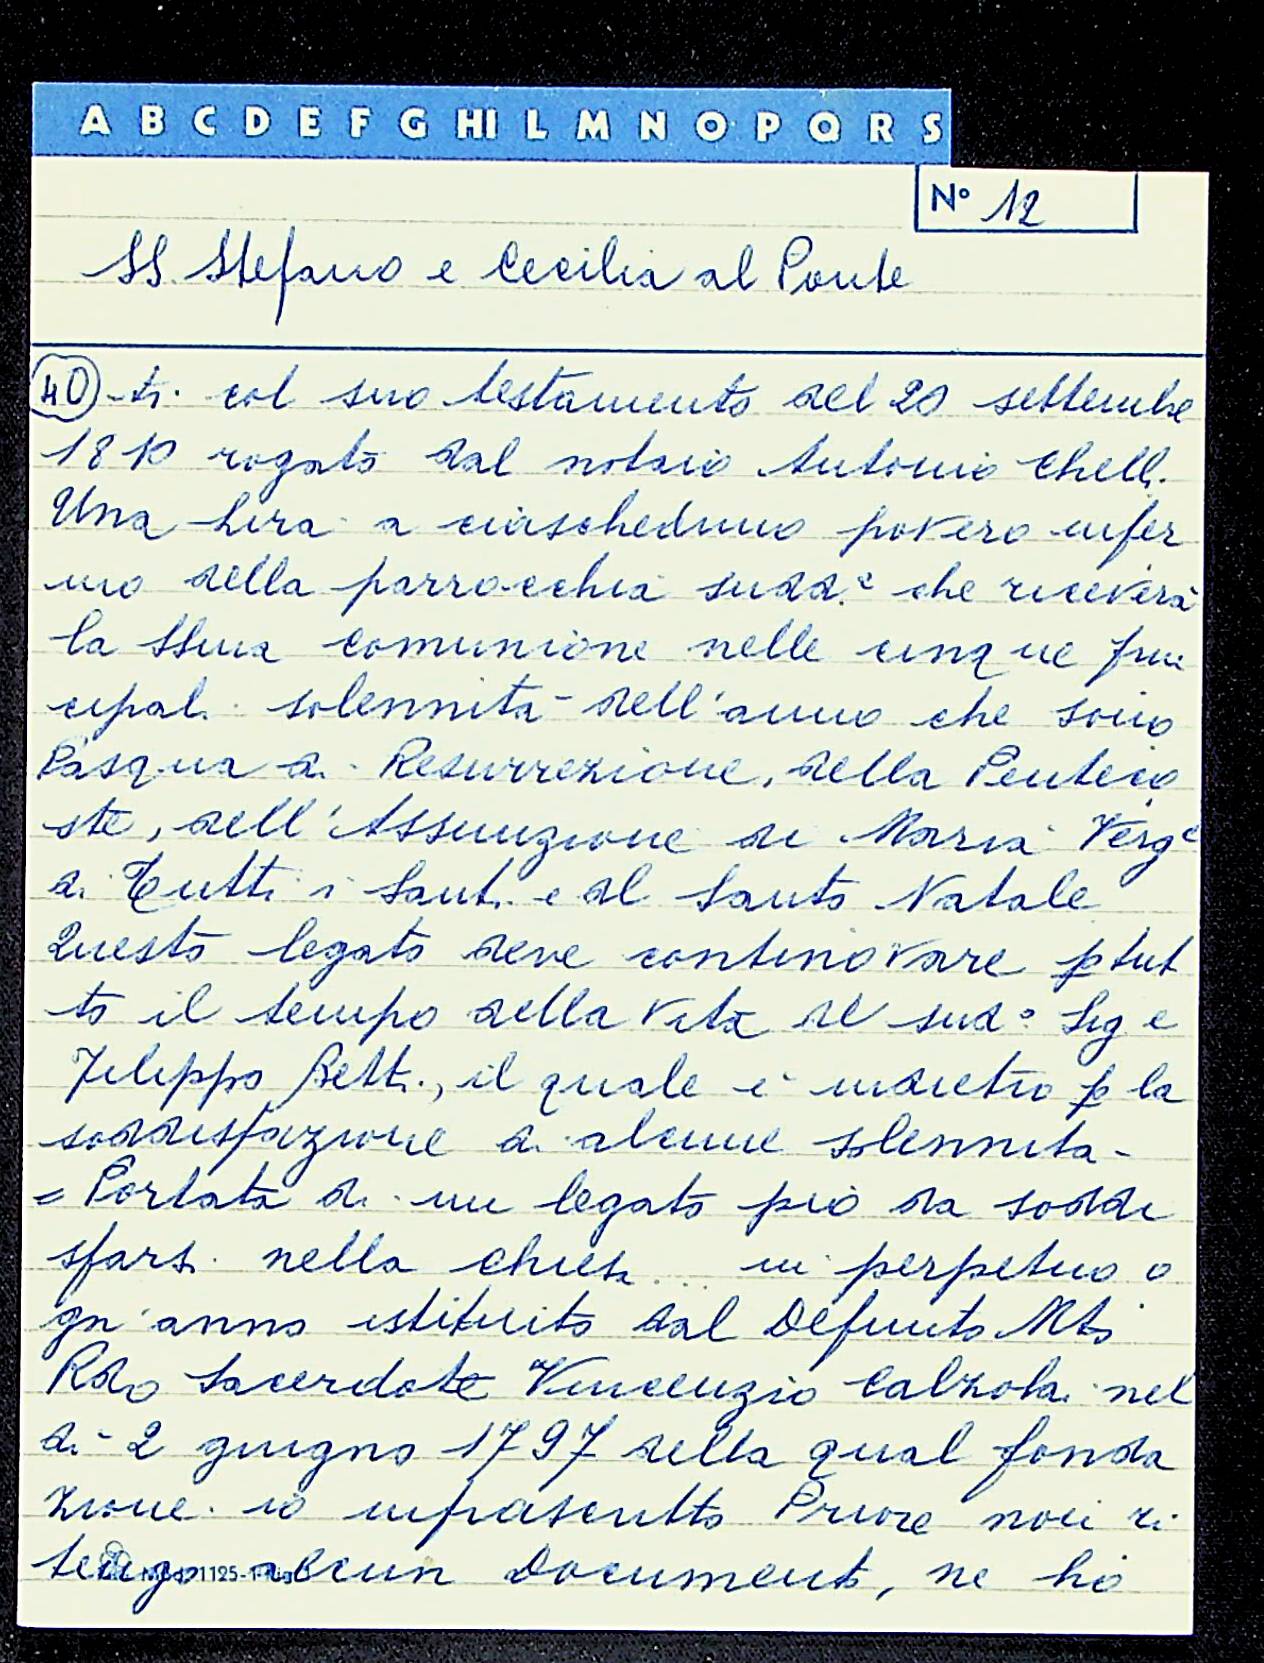 A B C D E F G HI L M N O P Q R S
N° 12
SS. Stefano e Cecilia al Ponte
40 -ti. col suo testamento del 20 settembre
1810 rogato dal notaio Antonio Chelli.
Una lira a ciascheduno povero infer
mo della parrocchia sudd.a che riceverà
la SSma comunione nelle cinque prin
cipali solennità dell'anno che sono
Pasqua di Resurrezione, della Penteco
ste, dell'Assunzione di Maria Verge
di Tutti i Santi e al Santo Natale
Questo legato deve continovare p tut
to il tempo della vita del sud° Sig e
Filippo Betti., il quale è indietro p la
soddisfazione di alcune solennità-
= Portata di un legato pio da soddi
sfarsi nella chiesa... in perpetuo o
gn'anno istituito dal Defunto Mto
Rdo Sacerdote Vincenzio Calzolai nel
dì 2 giugno 1797 della qual fonda
zione io infrascritto Priore non ri
tengo alcun documento, ne ho